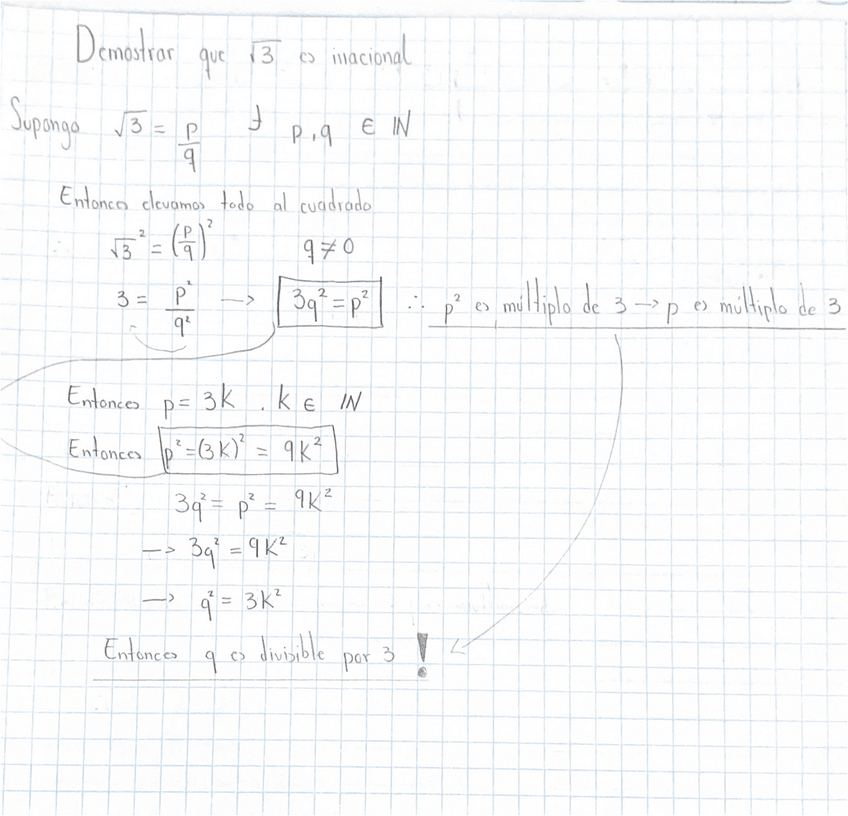 Demostrar que √3 es irracional
Supongo √3 = p/q ∃ p, q ∈ ℕ
Entonces elevamos todo al cuadrado
√3² = (p/q)² q ≠ 0
3 = p²/q² → 3q² = p² ∴ p² es múltiplo de 3 → p es múltiplo de 3
Entonces p = 3k , k ∈ ℕ
Entonces p² = (3k)² = 9k²
3q² = p² = 9k²
→ 3q² = 9k²
→ q² = 3k²
Entonces q es divisible por 3 !